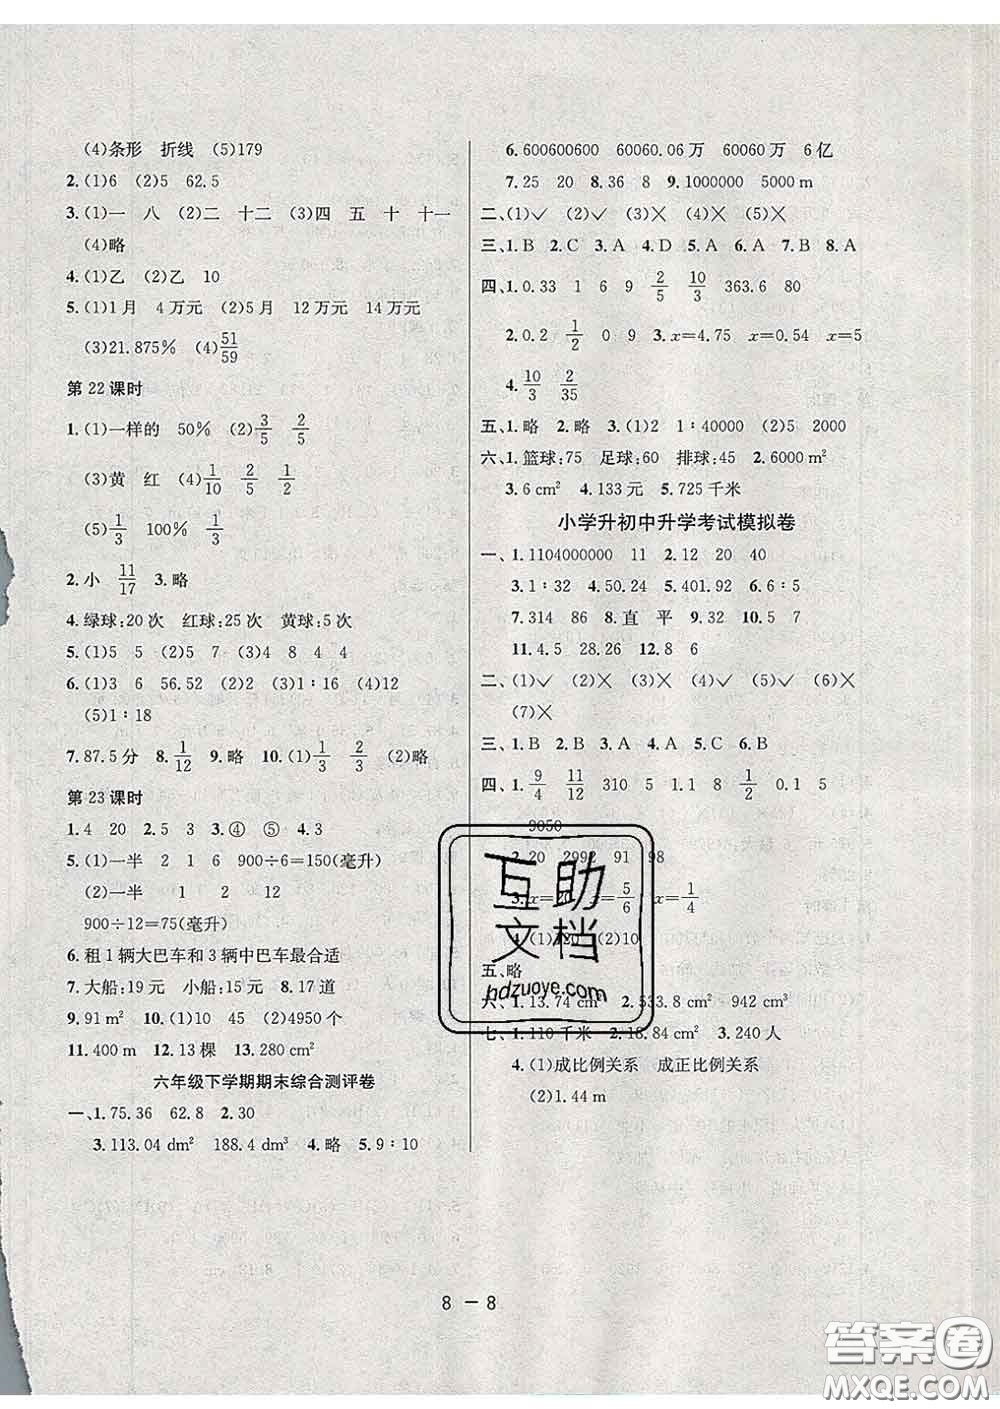 (4)条形 折线 (5)179
2.(1)6 (2)5 62.5
3.(1)一 八 (2)二 十二 (3)四 五 十 十一
(4)略
4.(1)乙 (2)乙 10
5.(1)1月 4万元 (2)5月 12万元 14万元
(3)21.875% (4)51/59
第22课时
1.(1)一样的 50% (2)3/5 2/5
(3)黄 红 (4)1/10 5/2 1/2
(5)1/3 100% 2/3
2.小 11/17 3.略
4.绿球:20次 红球:25次 黄球:5次
5.(1)5 (2)7 (3)4 8 4 4
6.(1)3 6 56.52 (2)2 (3)1:16 (4)12
(5)1:18
7.87.5分 8.1/12 9.略 10.(1)1/3 2/3 (2)略
第23课时
1.4 20 2.5 3 3.④ ⑤ 4.3
5.(1)一半 2 1 6 900÷6=150(毫升)
(2)一半 1 2 12
900÷12=75(毫升)
6.租1辆大巴车和3辆中巴车最合适
7.大船:19元 小船:15元 8.17道
9.91 m² 10.(1)10 45 (2)4950个
11.400 m 12.13棵 13.280 cm²
六年级下学期期末综合测评卷
一、1.75.36 62.8 2.30
3.113.04 dm² 188.4 dm³ 4.略 5.9:10
6.600600600 60060.06万 60060万 6亿
7.25 20 8.36 8 9.1000000 5000 m
二、(1)✓ (2)✓ (3)✕ (4)✕ (5)✕
三、1.B 2.C 3.A 4.D 5.A 6.A 7.B 8.A
四、1.0.33 1 6 9 2/5 10/3 363.6 80
2.0.2 1/2 0 9 3.x=4.75 x=0.54 x=5
4.10/3 2/35
五、1.略 2.略 3.(1)2 1:40000 (2)5 2000
六、1.篮球:75 足球:60 排球:45 2.6000 m²
3.6 cm² 4.133元 5.725千米
小学升初中升学考试模拟卷
一、1.1104000000 11 2.12 20 40
3.1:32 4.50.24 5.401.92 6.6:5
7.314 86 8.直 平 9.90 10.5 7
11.4.5 28.26 12.8 6
二、(1)✓ (2)✕ (3)✕ (4)✕ (5)✓ (6)✕
(7)✕
三、1.B 2.B 3.A 4.A 5.B 6.B
四、1.9/4 11/12 310 5 1.1 8 1/2 0.1 5
9050
2.20 2992 91 98
3.x=20 x=5/6 x=1/4
4.(1)120 (2)10
五、略
六、1.13.74 cm² 2.533.8 cm² 942 cm³
七、1.110千米 2.18.84 cm² 3.240人
4.(1)成比例关系 成正比例关系
(2)1.44 m
互助
文档
hdzuoye.com
8 － 8
答案圈
MXQE.COM